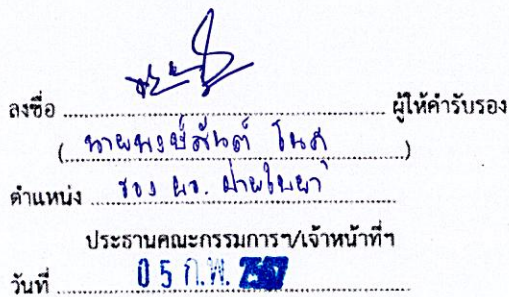 ลงชื่อ ........................ ผู้ให้คำรับรอง
( นายพงษ์สันต์ )
ตำแหน่ง รอง ผอ.
ประธานคณะกรรมการฯ/เจ้าหน้าที่ฯ
วันที่ 05 ก.พ. 2567